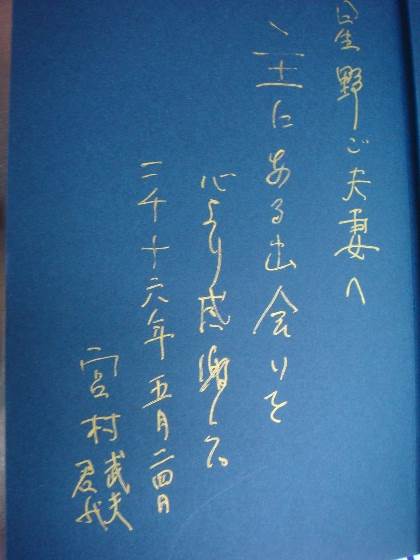 星野ご夫妻へ
主にある出会いを
心より感謝して
二千十六年五月二四日
宮村武夫
君代